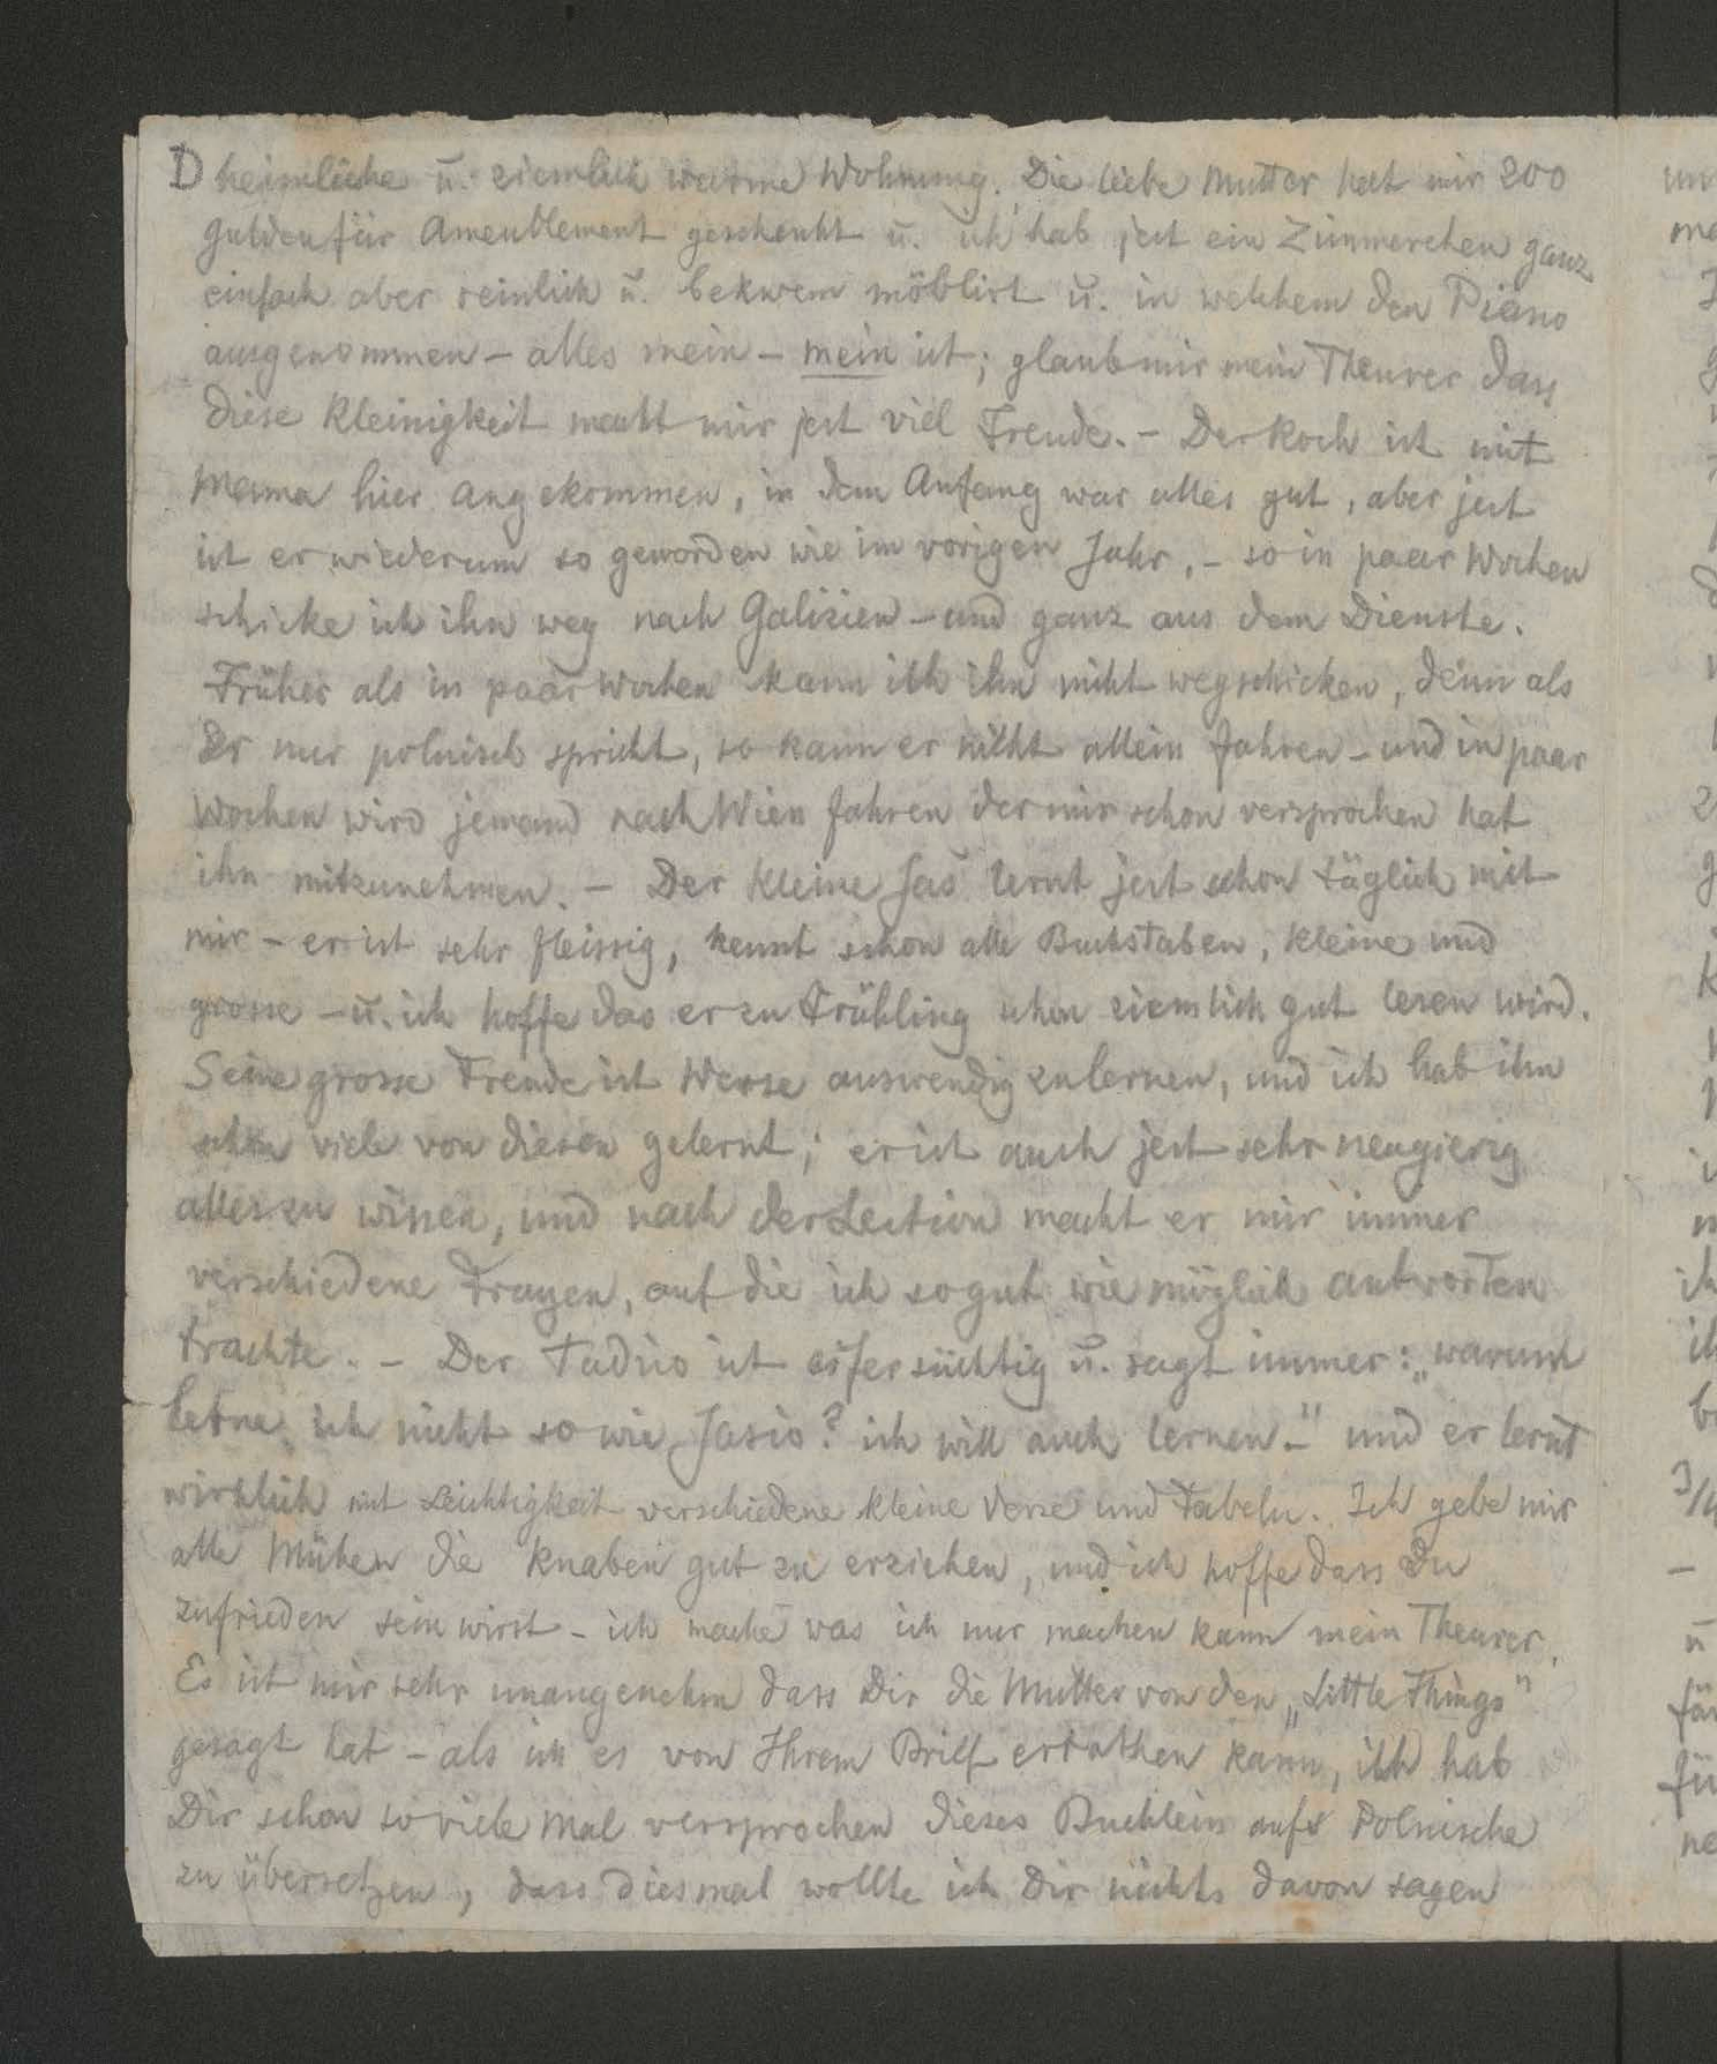 D heimliche ū. ziemlich warme Wohnung. Die liebe Mutter hat mir 200
Gulden für Ameublement geschenkt ū. ich hab jest ein Zimmerchen ganz
einfach aber reinlich ū. bekwem möblirt ū. in welchem den Piano
ausgenommen – alles mein – mein ist; glaub mir mein Theurer dass
diese Kleinigkeit macht mir jest viel Freude. – Der Koch ist mit
Mama hier angekommen, in dem Anfang war alles gut, aber jest
ist er wiederum so geworden wie im vorigen Jahr. – so in paar Wochen
schicke ich ihn weg nach Galizien – und ganz aus dem Dienste.
Früher als in paar Wochen kann ich ihn nicht wegschicken, denn als
Er nur polnisch spricht, so kann er nicht allein fahren – und in paar
Wochen wird jemand nach Wien fahren der mir schon versprochen hat
ihn mitzunehmen. – Der Kleine Jaś lernt jest schon täglich mit
mir – er ist sehr fleissig, kennt schon alle Buchstaben, kleine und
grosse – ū. ich hoffe das er zu Frühling schon ziemlich gut lesen wird.
Seine grosse Freude ist Werse auswendig zu lernen, und ich hab ihm
schon viele von diesen gelernt; er ist auch jest sehr neugierig
alles zu wissen, und nach der Lection macht er mir immer
verschiedene Fragen, auf die ich so gut wie möglich antworten
trachte. – Der Tadzio ist eifersüchtig ū. sagt immer: „warum
lerne ich nicht so wie Jasio? ich will auch lernen. –" und er lernt
wirklich mit Leichtigkeit verschiedene kleine Verse und Fabeln. Ich gebe mir
alle Mühen die Knaben gut zu erziehen, und ich hoffe dass Du
zufrieden sein wirst – ich mache was ich nur machen kann mein Theurer.
Es ist mir sehr unangenehm dass Dir die Mutter von den „Little Things"
gesagt hat – als ich es von Ihrem Brief errathen kann, ich hab
Dir schon so viele Mal versprochen dieses Buchlein aufs Polnische
zu übersetzen, dass diesmal wollte ich Dir nichts davon sagen